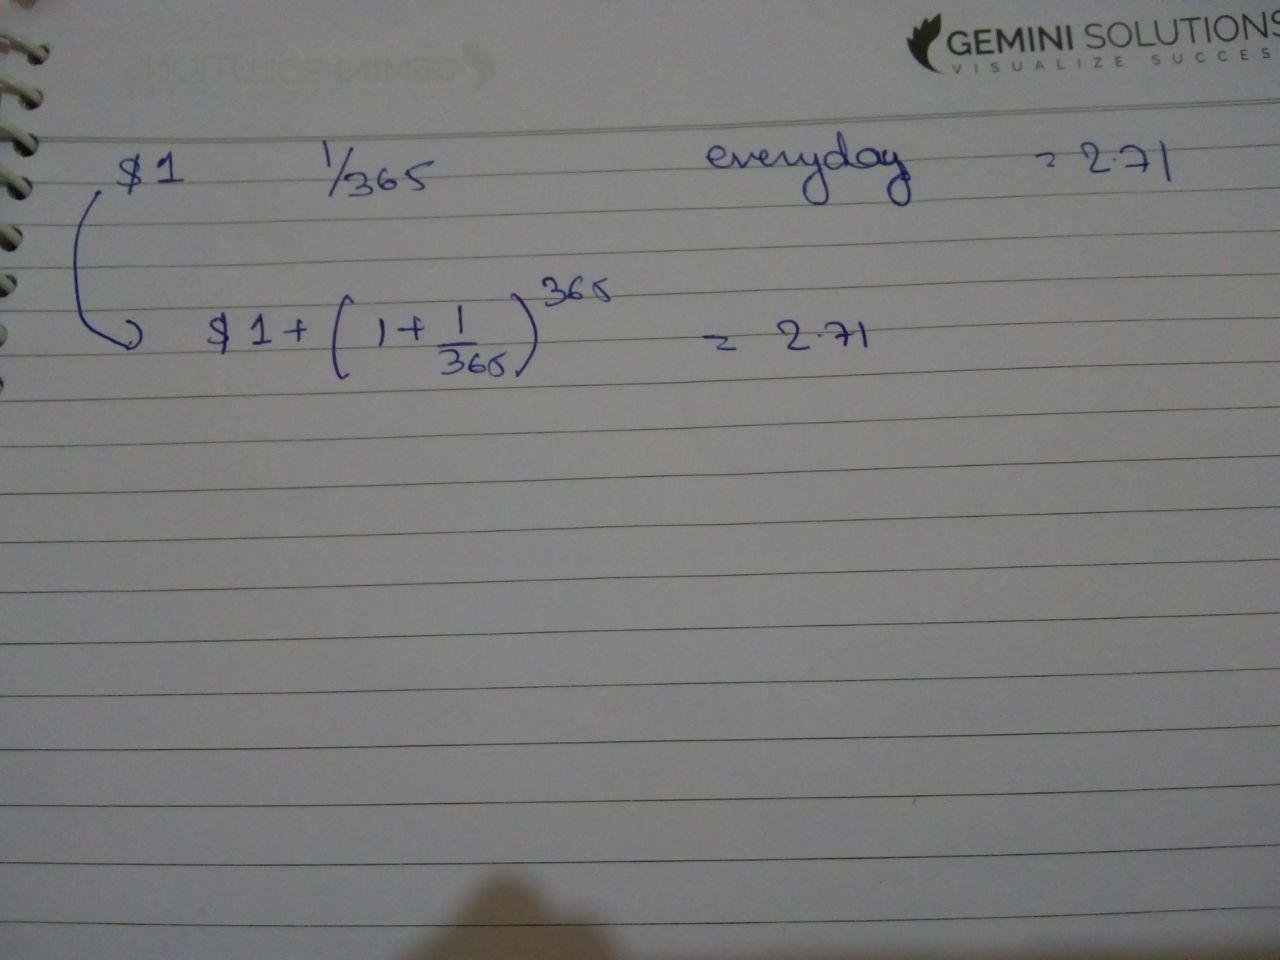 GEMINI SOLUTIONS
VISUALIZE SUCCES
$1 1/365 everyday = 2.71
$1 + (1 + 1/365)^365 = 2.71